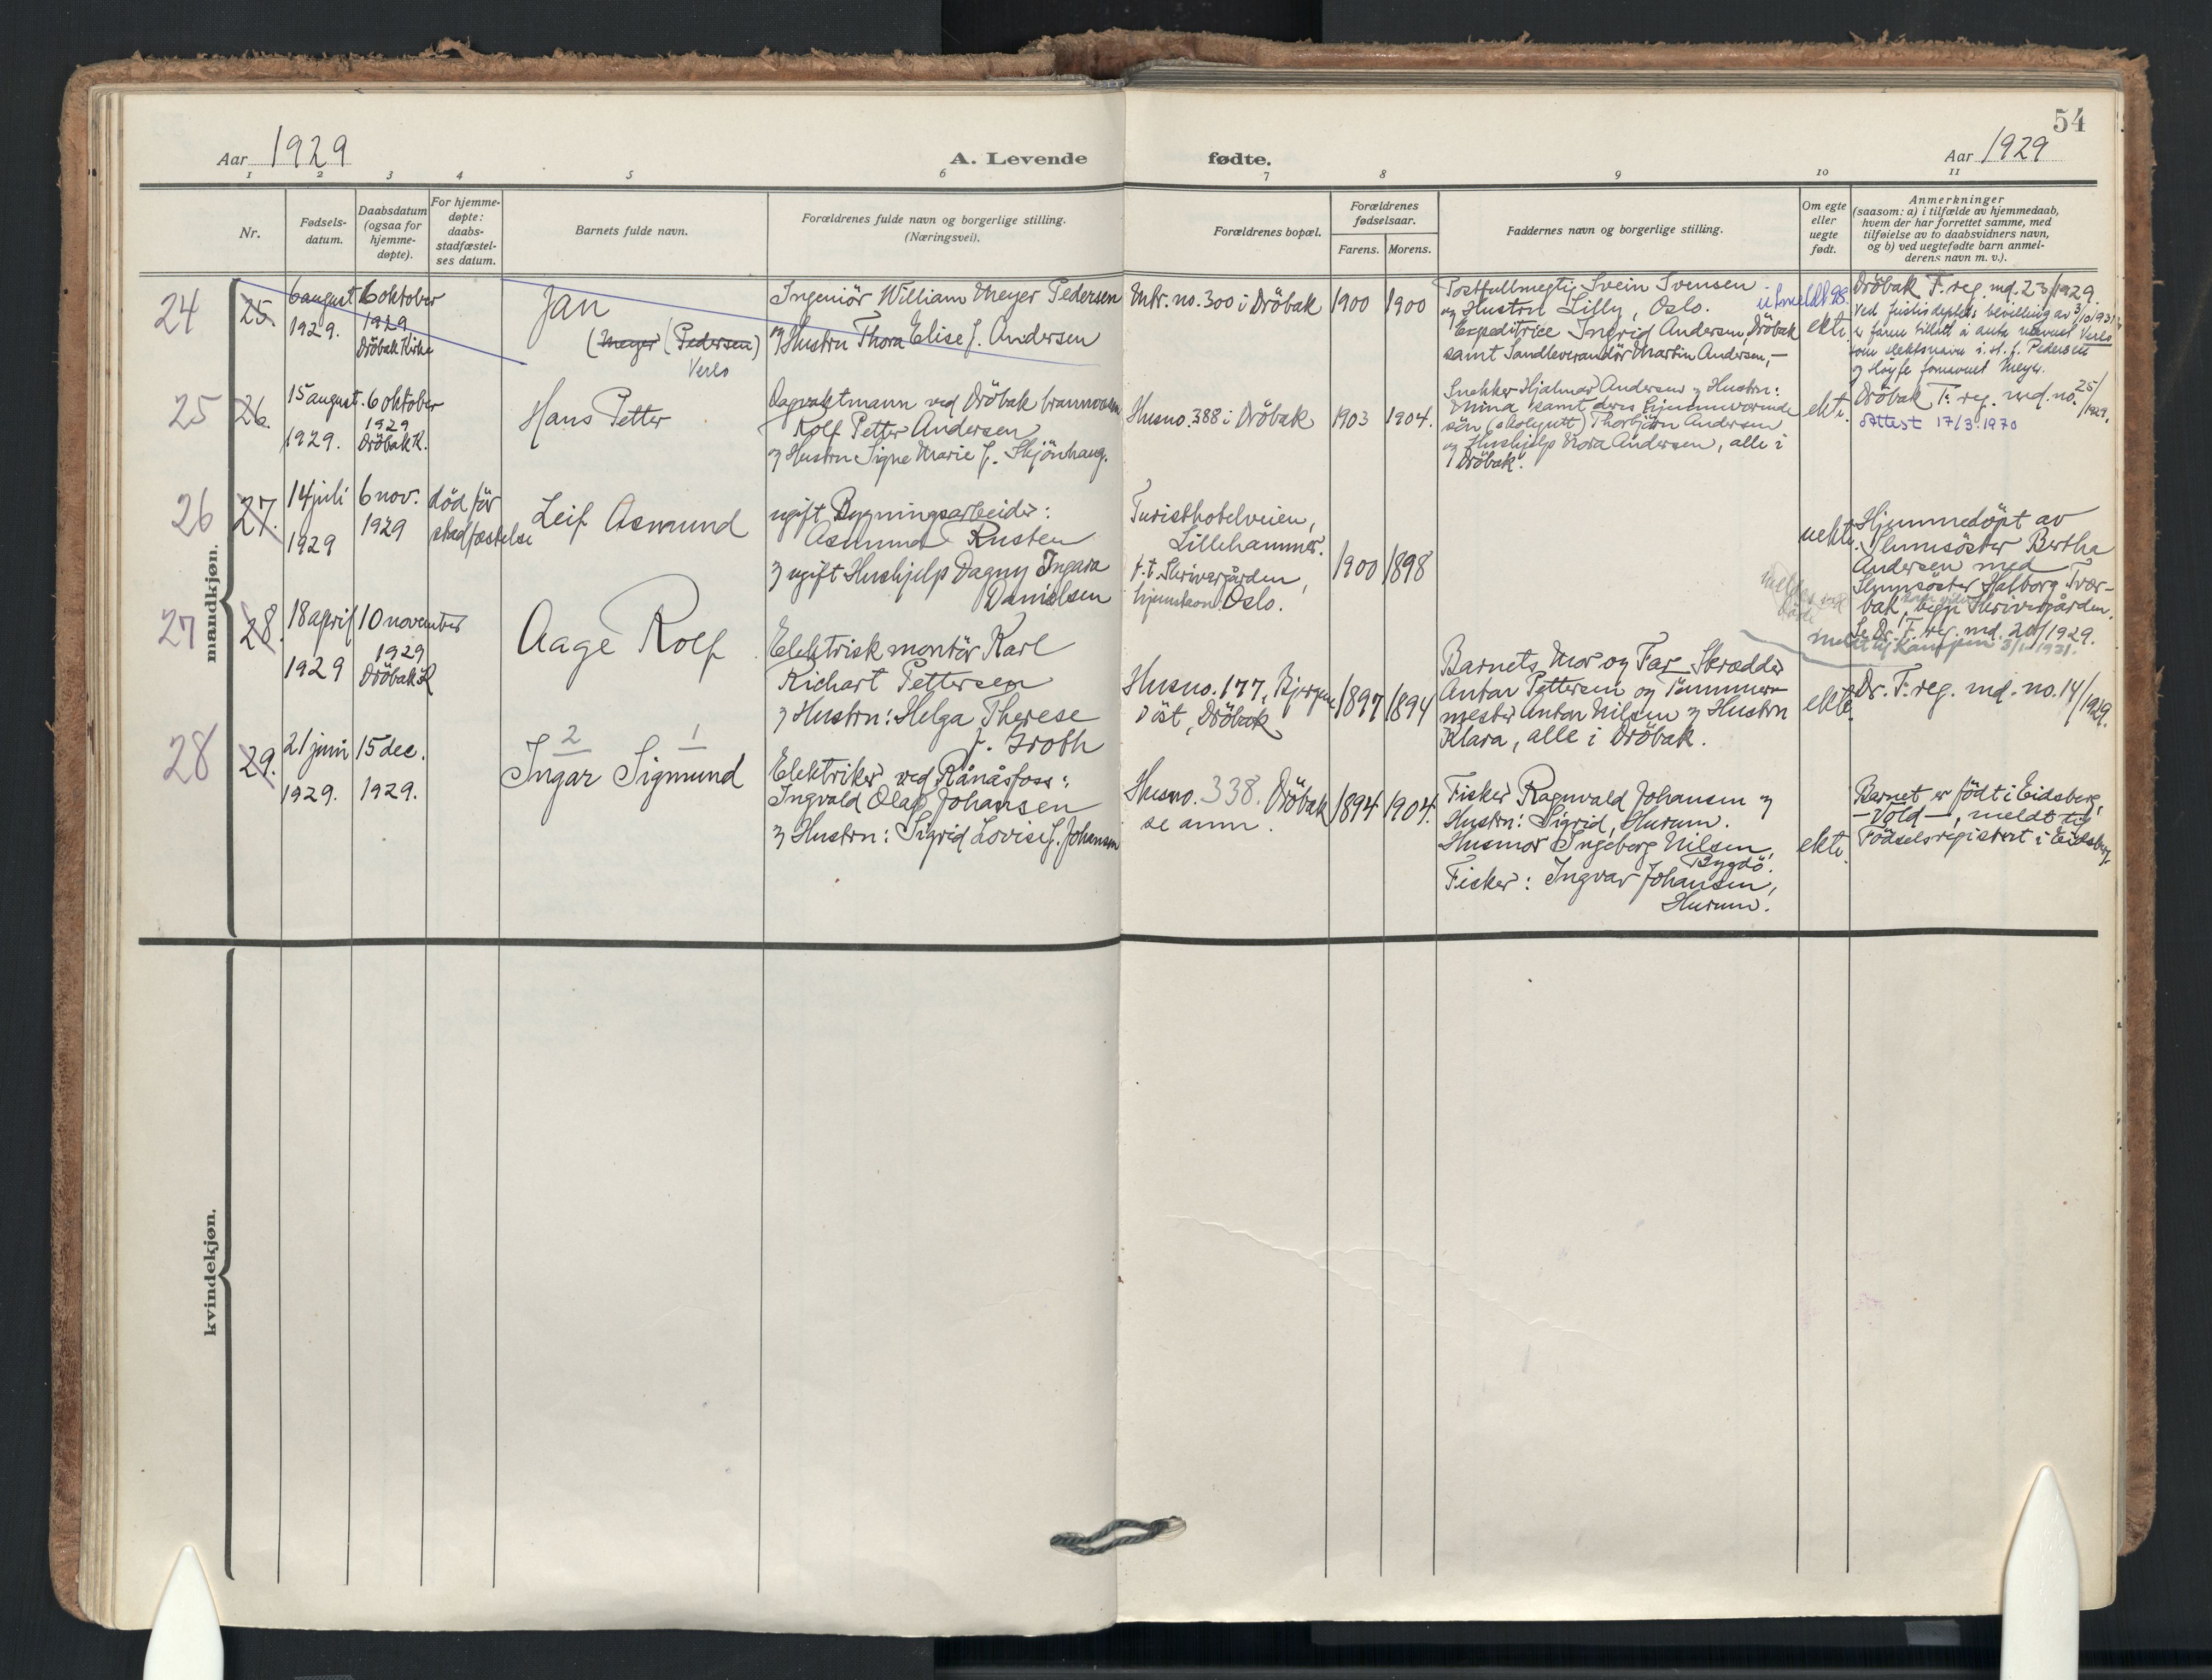 54
Aar 1929
A. Levende fødte.
Aar 1929
1 2 3 4 5 6 7 8 9 10 11
Nr.
Fødsels-
datum.
Daabsdatum
(ogsaa for
hjemme-
døpte).
For hjemme-
døpte:
daabs-
stadfæstel-
ses datum.
Barnets fulde navn.
Forældrenes fulde navn og borgerlige stilling.
(Næringsvei).
Forældrenes bopæl.
Forældrenes
fødselsaar.
Farens. Morens.
Faddernes navn og borgerlige stilling.
Om egte
eller
uegte
født.
Anmerkninger
(saasom: a) i tilfælde av hjemmedaab,
hvem der har forrettet samme, med
tilføielse av to daabsvidners navn,
og b) ved uegtefødte barn anmel-
derens navn m. v.).
mandkjøn.
24 25.
6 august
1929.
6 oktober
1929
Dröbak Kirke
Jan
(Meyer) (Pedersen)
Verlo
Ingeniör William Meyer Pedersen
og Hustru Thora Elise f. Andersen
Mtr. no. 300 i Dröbak
1900 1900
Postfullmegtig Svein Svensen
og Hustru Lilly, Oslo.
Expeditrice Ingrid Andersen, Dröbak
samt Sandleverandör Martin Andersen, –
utmeldt
ekte.
Dröbak F. reg. md. 23/1929.
Ved Justisdeptets bevilling av 3/10 1931
er faren tillatt å anta navnet Verlo
som slektsnavn i. st. f. Pedersen
og sløyfe fornavnet Meyer.
25 26.
15 august.
1929.
6 oktober
1929
Dröbak K.
Hans Petter
Dagvaktmann ved Dröbak brannvesen
Rolf Petter Andersen
og Hustru Signe Marie f. Skjönhaug.
Husno. 388 i Dröbak
1903 1904.
Snekker Hjalmar Andersen og Hustru:
Mina samt deres hjemmeværende
sön (skolegutt) Thorbjörn Andersen
og Hushjelp Nora Andersen, alle i
Dröbak.
ekte.
Dröbak F. reg. md. no. 25/1929.
Attest 17/3 1970
26 27.
14 juli
1929
6 nov.
1929
död för
stadfæstelse
Leif Asmund
ugift Bygningsarbeider:
Asmund Rusten
og ugift Hushjelp Dagny Ingara
Danielsen
Turisthotelveien,
Lillehammer.
t. t. Skrivergården,
hjemkom. Oslo.
1900 1898
uekte.
Hjemmedöpt av
Slumsöster Bertha
Andersen med
Slumsöster Halborg Tvær-
bak, begge Skrivergården.
Se Dr. F. reg. md. 20/1929.
27 28.
18 april
1929
10 november
1929
Dröbak K
Aage Rolf
Elektrisk montör Karl
Richart Pettersen
og Hustru: Helga Therese
f. Groth
Husno. 177, Bjergene
öst, Dröbak
1897 1894
Barnets Mor og Far Skrædder
Anton Pettersen og Tömmer-
mester Anton Nilsen og Hustru
Klara, alle i Dröbak.
ekte.
Dr. F. reg. md. no. 14/1929.
28 29.
21 juni
1929.
15 dec.
1929.
2 1
Ingar Sigmund
Elektriker ved Rånåsfoss:
Ingvald Olaf Johansen
og Hustru: Sigrid Lovise f. Johansen
Husno. 338. Dröbak
se anm.
1894 1904.
Fisker Ragnvald Johansen og
Hustru: Sigrid, Hurum.
Husmor Ingeborg Nilsen,
Bygdö.
Fisker: Ingvar Johansen,
Hurum.
ekte.
Barnet er födt i Eidsberg,
– Vold –, meldt til
Födselsregistret i Eidsberg.
kvindekjøn.